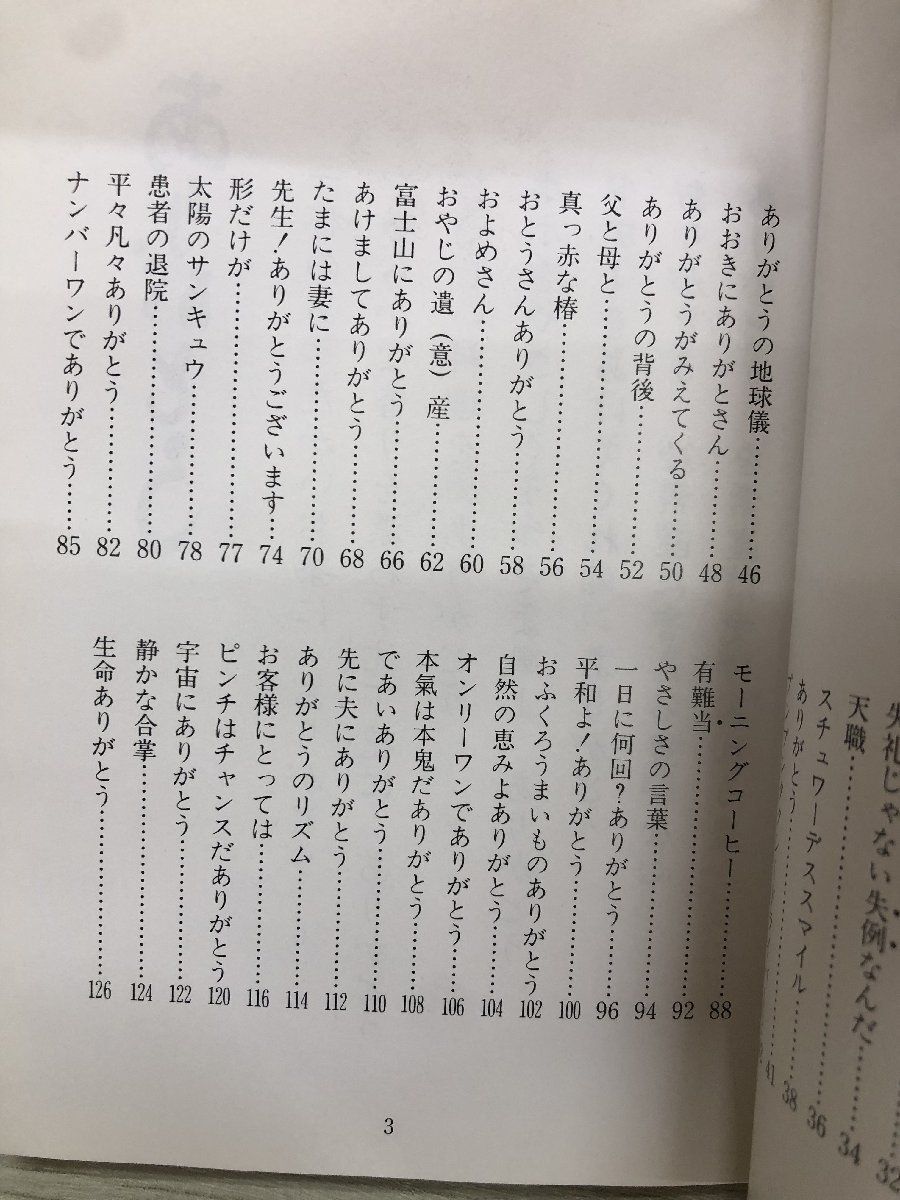 失礼じゃない失例なんだ………32
天職………34
スチュワーデススマイル………36
ありがとう………38
41
ありがとうの地球儀………46
おおきにありがとさん………48
ありがとうがみえてくる………50
ありがとうの背後………52
父と母と………54
真っ赤な椿………56
おとうさんありがとう………58
およめさん………60
おやじの遺(意)産………62
富士山にありがとう………66
あけましてありがとう………68
たまには妻に………70
先生!ありがとうございます………74
形だけが………77
太陽のサンキュウ………78
患者の退院………80
平々凡々ありがとう………82
ナンバーワンでありがとう………85
モーニングコーヒー………88
有難当………92
やさしさの言葉………94
一日に何回?ありがとう………96
平和よ!ありがとう………100
おふくろうまいものありがとう………102
自然の恵みよありがとう………104
オンリーワンでありがとう………106
本氣は本鬼だありがとう………108
であいありがとう………110
先に夫にありがとう………112
ありがとうのリズム………114
お客様にとっては………116
ピンチはチャンスだありがとう………120
宇宙にありがとう………122
静かな合掌………124
生命ありがとう………126
3